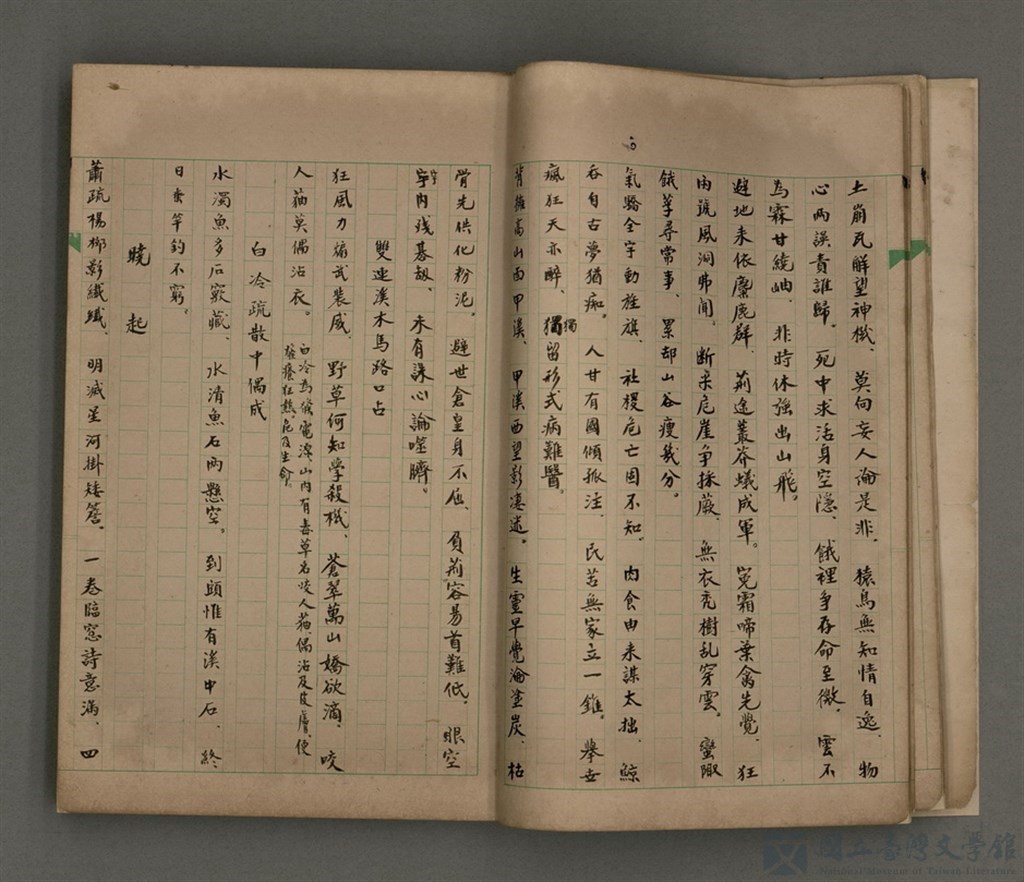 土崩瓦解望神機、莫向妄人論是非、猿鳥無知情自逸、物
心两誤責誰歸。死中求活身空隱、餓裡爭存命至微、雲不
為霖甘繞岫、非時休強出山飛。
避地来依麋鹿群、荊途叢莽蟻成軍。寃霜啼葉禽先覺、狂
雨號風洞弗聞。断朵危崖爭採蕨、無衣禿樹乱穿雲。蠻陬
餓莩尋常事、累却山谷瘦幾分。
氣驕全宇動旌旗、社稷危亡固不知、肉食由来謀太拙、鯨
吞自古夢猶痴。人甘有國傾孤注、民苦無家立一錐。舉世
瘋狂天亦醉、獨獨留形式病難醫。
背擁高山面甲溪、甲溪西望影凄迷。生靈早覺淪塗炭、枯
骨先供化粉泥。避世倉皇身不屈、負荊容易首難低。眼空
宇内残碁劫、未有誅心論噬臍。
雙連溪木馬路口占
狂風力煽武裝威、野草何知學殺機、蒼翠萬山嬌欲滴、咬
人猫莫偶沾衣。
白冷為發電源、山内有毒草名咬人猫、偶沾及皮膚、便
狂熱、危及生命。
白冷疏散中偶成
水濁魚多石窽藏、水清魚石两懸空。到頭惟有溪中石、終
日垂竿釣不窮。
曉起
蕭疏楊柳影纖纖、明滅星河掛矮簷、一卷臨窓詩意滿、四
國立臺灣文學館
National Museum of Taiwan Literature